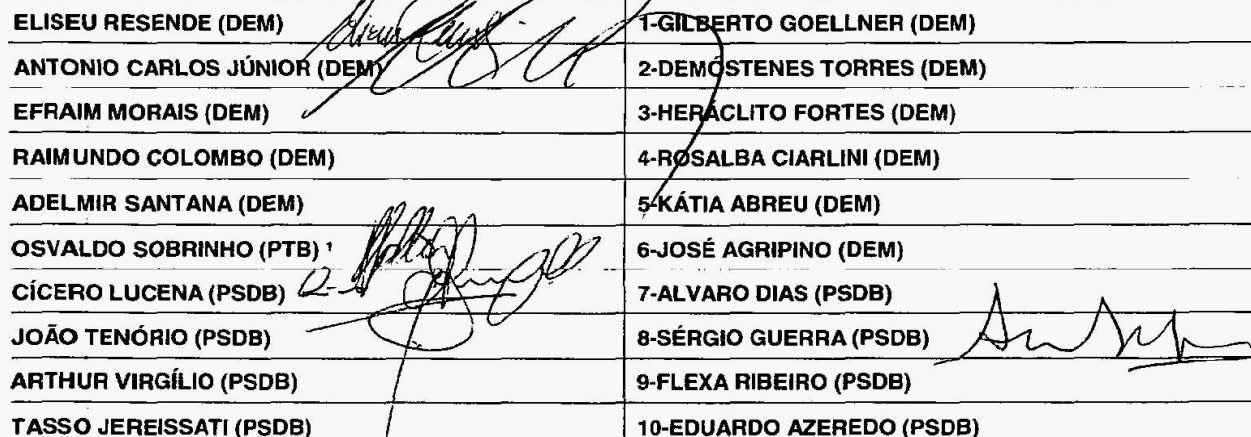 ELISEU RESENDE (DEM) 1-GILBERTO GOELLNER (DEM)
ANTONIO CARLOS JÚNIOR (DEM) 2-DEMÓSTENES TORRES (DEM)
EFRAIM MORAIS (DEM) 3-HERÁCLITO FORTES (DEM)
RAIMUNDO COLOMBO (DEM) 4-ROSALBA CIARLINI (DEM)
ADELMIR SANTANA (DEM) 5-KÁTIA ABREU (DEM)
OSVALDO SOBRINHO (PTB) ¹ 6-JOSÉ AGRIPINO (DEM)
CÍCERO LUCENA (PSDB) 7-ALVARO DIAS (PSDB)
JOÃO TENÓRIO (PSDB) 8-SÉRGIO GUERRA (PSDB)
ARTHUR VIRGÍLIO (PSDB) 9-FLEXA RIBEIRO (PSDB)
TASSO JEREISSATI (PSDB) 10-EDUARDO AZEREDO (PSDB)